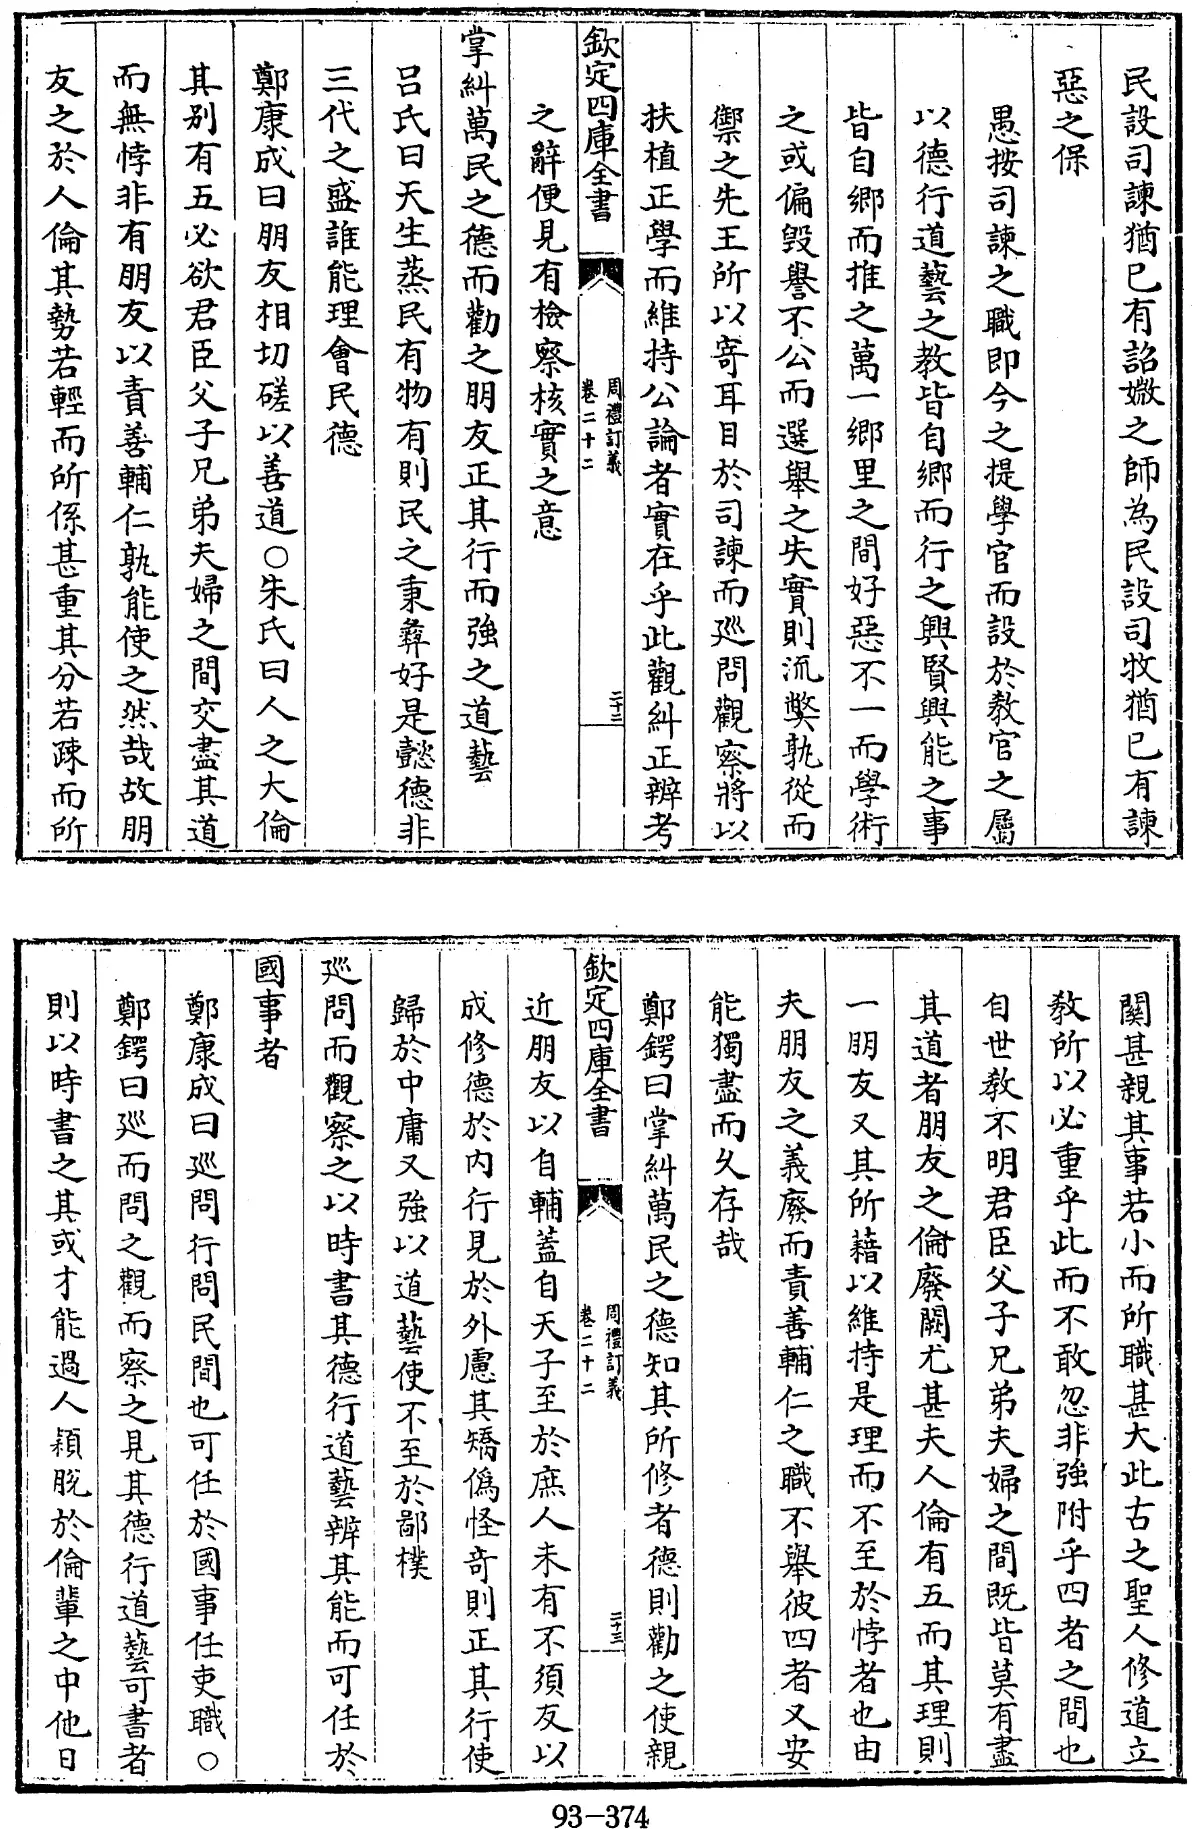 民設司諫猶已有詔媺之師為民設司牧猶已有諫
惡之保
愚按司諫之職即今之提學官而設於教官之屬
以德行道藝之教皆自鄉而行之興賢興能之事
皆自鄉而推之萬一鄉里之間好惡不一而學術
之或偏毀譽不公而選舉之失實則流獘孰從而
禦之先王所以寄耳目於司諫而廵問觀察將以
扶植正學而維持公論者實在乎此觀糾正辨考
欽定四庫全書
周禮訂義
卷二十二
二十二
之辭便見有檢察核實之意
掌糾萬民之德而勸之朋友正其行而強之道藝
呂氏曰天生蒸民有物有則民之秉彜好是懿德非
三代之盛誰能理會民德
鄭康成曰朋友相切磋以善道○朱氏曰人之大倫
其别有五必欲君臣父子兄弟夫婦之間交盡其道
而無悖非有朋友以責善輔仁孰能使之然哉故朋
友之於人倫其勢若輕而所係甚重其分若疎而所
關甚親其事若小而所職甚大此古之聖人修道立
教所以必重乎此而不敢忽非強附乎四者之間也
自世教不明君臣父子兄弟夫婦之間既皆莫有盡
其道者朋友之倫廢闕尤甚夫人倫有五而其理則
一朋友又其所藉以維持是理而不至於悖者也由
夫朋友之義廢而責善輔仁之職不舉彼四者又安
能獨盡而久存哉
鄭鍔曰掌糾萬民之德知其所修者德則勸之使親
欽定四庫全書
周禮訂義
卷二十二
二十三
近朋友以自輔蓋自天子至於庶人未有不須友以
成修德於内行見於外慮其矯偽怪奇則正其行使
歸於中庸又強以道藝使不至於鄙樸
廵問而觀察之以時書其德行道藝辨其能而可任於
國事者
鄭康成曰廵問行問民間也可任於國事任吏職○
鄭鍔曰廵而問之觀而察之見其德行道藝可書者
則以時書之其或才能過人穎脫於倫輩之中他日
93-374